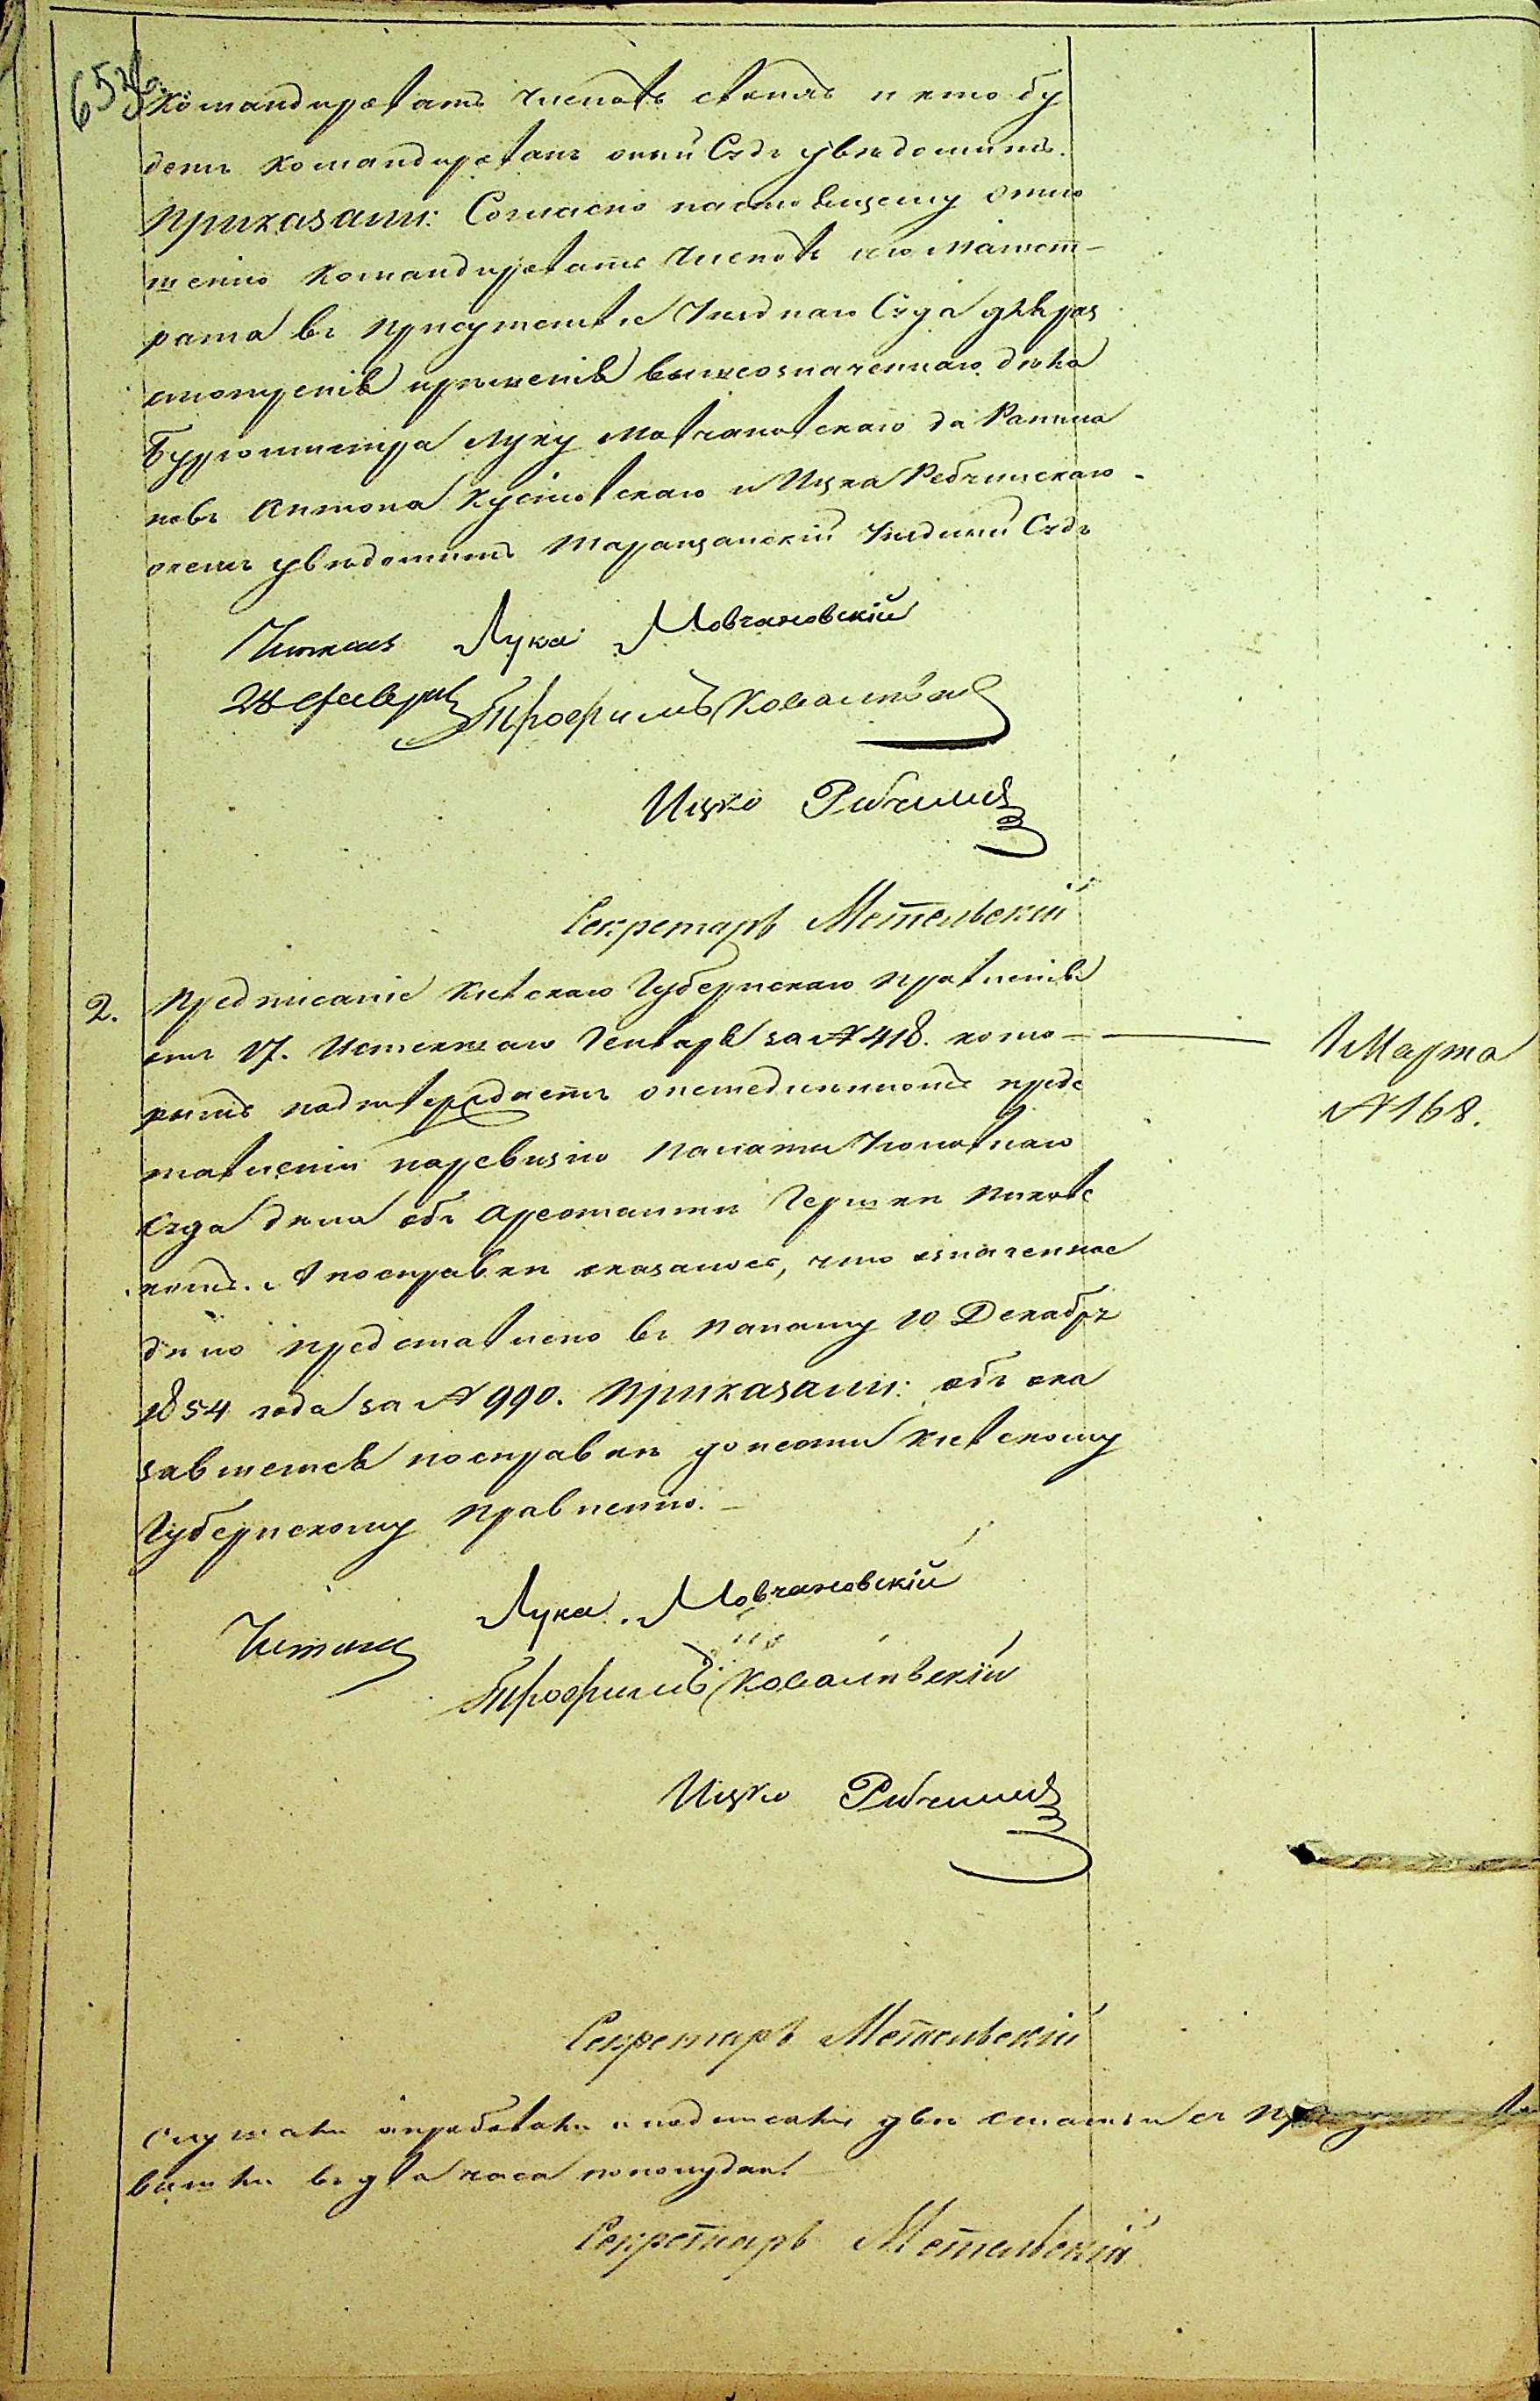 командировать членовъ своихъ и кто бу
детъ командированъ оный Судъ увѣдомить.
Приказали: Согласно настоящему отно
шенію командировать Членовъ сего Магист-
рата въ присутствіе Уѣзднаго Суда для раз
смотренія и решенія вышеозначеннаго дѣла
Бургомистра Луку Мовчановскаго да Ратма
новъ Антона Кусиовскаго и Ицка Рабчинскаго
о чемъ увѣдомить Таращанскій Уѣздный Судъ
Читалъ Лука Мовчановскій
28 февраля Трофимъ Ковалѣвскій
Ицко
Секретарь Метельскій
2. Предписаніе Кіевскаго Губернскаго Правленія
отъ 17. Истекшаго Генваря за № 418. кото-
1 Марта
№ 168.
рымъ подтверждаетъ о немедленномъ предс
тавленіи на ревизію Палаты Уголовнаго
Суда дѣла объ Арестантѣ Гершкѣ
комъ. А по справкѣ оказалось, что означенное
дѣло представлено въ Палату 10 Декабря
1854 года за № 990. Приказали: объ ока
завшемся по справкѣ донести Кіевскому
Губернскому Правленію.
Читалъ Лука Мовчановскій
Трофимъ Ковалѣвскій
Ицко
Секретарь Метельскій
Слушали и подписали двѣ статьи а
вышли въ два часа по полудни
Секретарь Метельскій